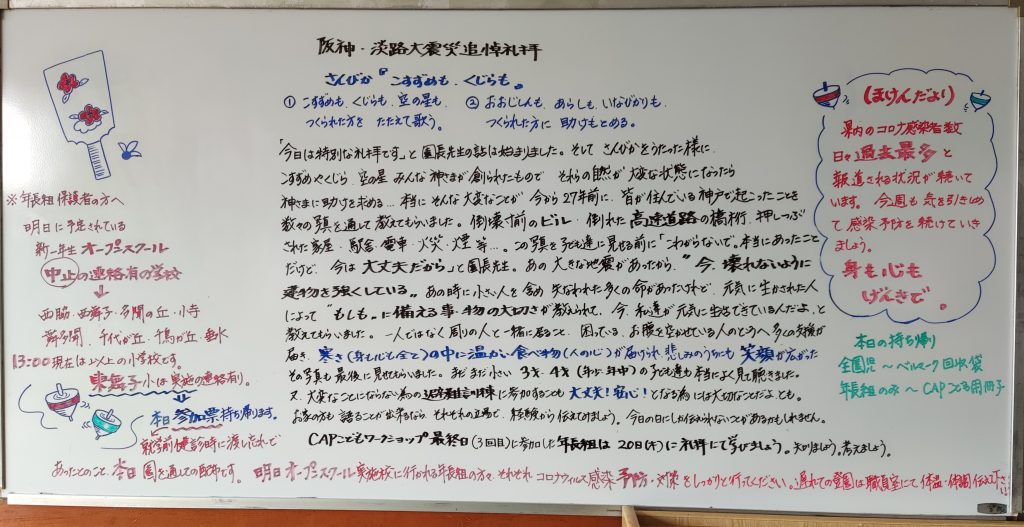 阪神・淡路大震災追悼礼拝
さんびか『こすずめも、くじらも』
① こすずめも、くじらも、空の星も、
つくられた方を たたえて歌う。
② おおじしんも、あらしも、いなびかりも、
つくられた方に 助けもとめる。
「今日は特別な礼拝です」と園長先生の話は始まりました。そして さんびかをうたった様に、
こすずめやくじら、空の星 みんな神さまが創られたもので それらの自然が大変な状態になったら
神さまに助けを求める… 本当にそんな大変なことが 今から27年前に、皆が住んでいる神戸で起こったことを
数々の写真を通して教えてもらいました。倒壊寸前のビル・倒れた高速道路の橋桁、押しつぶ
された家屋・駅舎・電車・火災・煙等…。この写真を子ども達に見せる前に「こわがらないで。本当にあったこと
だけど、今は大丈夫だから」と園長先生。あの大きな地震があったから、"今、壊れないように
建物を強くしている。" あの時に小さい人を含め 失なわれた多くの命があったけれど、元気に生かされた人
によって "もしも"に備える事・物の大切さが教えられて、今、私達が元気に生きてきているんだよ、と
教えてもらいました。一人ではなく周りの人と一緒に居ること、困っている、お腹を空かせている人のところへ 多くの支援が
届き、寒さ(身も心も全て)の中に温かい食べ物(人の心)が届けられ 悲しみのうちにも 笑顔が広がった
その写真も最後に見せてもらいました。まだまだ小さい 3才・4才(年少・年中)の子ども達も本当によく見て聴きました。
又、大変なことにならない為の避難訓練に参加することも 大丈夫!安心!となる為には大切なことだよ、とも。
お家の方も 語ることが出来るなら、それぞれの立場で、経験から伝えてみましょう。今日の日にしか伝えられないことがあるかもしれません。
CAPこどもワークショップ 最終日(3回目)に参加した年長組は 20日(木)に礼拝にて学びましょう。知りましょう。考えましょう。
※年長組保護者の方へ
明日に予定されている
新一年生 オープンスクール
中止の連絡有の学校
↓
西脇・西舞子・多聞の丘・小寺
舞多聞・千代が丘・千鳥が丘・垂水
13:00現在は以上の小学校です。
東舞子小は実施の連絡有り。
本日 参加票持ち帰ります。
就学前健診時に渡し忘れで
あったとのこと、本日 園を通しての配布です。 明日 オープンスクール実施校に行かれる年長組の方々、それぞれ コロナウィルス感染予防・対策をしっかりと行ってください。遅れての登園は職員室にて 体温・体調 伝え下さい
(ほけんだより)
県内のコロナ感染者数
日々 過去最多 と
報道される状況が続いて
います。今週も 気を引きしめ
て 感染予防を続けていき
ましょう。
身も心も
げんきで。
本日の持ち帰り
全園児 〜ベルマーク回収袋
年長組のみ 〜CAPこども用冊子